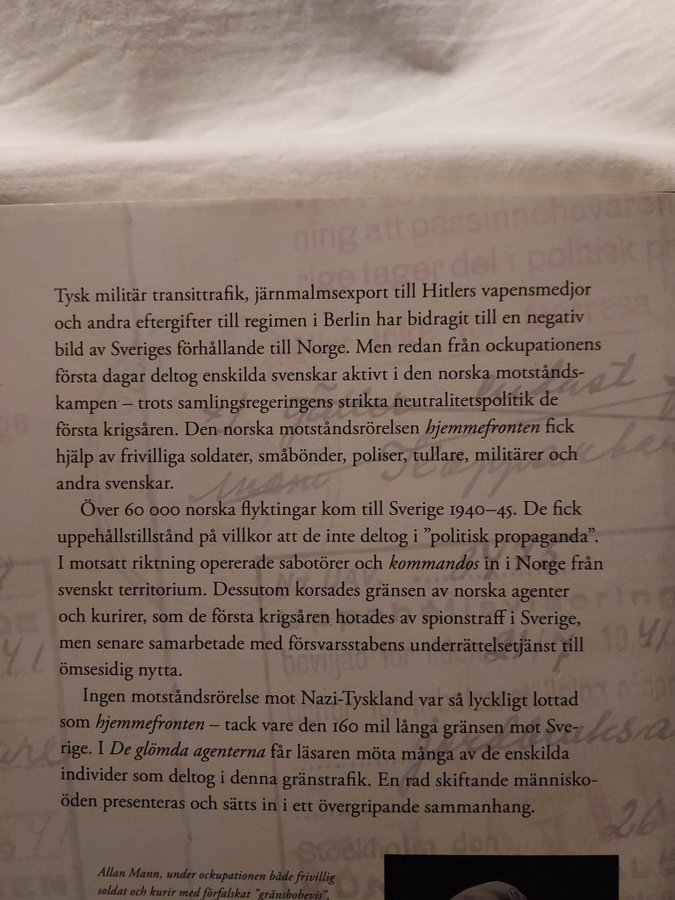 ning att passinnehavaren
rige tager del i politisk pr
Tysk militär transittrafik, järnmalmsexport till Hitlers vapensmedjor
och andra eftergifter till regimen i Berlin har bidragit till en negativ
bild av Sveriges förhållande till Norge. Men redan från ockupationens
första dagar deltog enskilda svenskar aktivt i den norska motstånds-
kampen – trots samlingsregeringens strikta neutralitetspolitik de
första krigsåren. Den norska motståndsrörelsen hjemmefronten fick
hjälp av frivilliga soldater, småbönder, poliser, tullare, militärer och
andra svenskar.
Över 60 000 norska flyktingar kom till Sverige 1940–45. De fick
uppehållstillstånd på villkor att de inte deltog i ”politisk propaganda”.
I motsatt riktning opererade sabotörer och kommandos in i Norge från
svenskt territorium. Dessutom korsades gränsen av norska agenter
och kurirer, som de första krigsåren hotades av spionstraff i Sverige,
men senare samarbetade med försvarsstabens underrättelsetjänst till
ömsesidig nytta.
Ingen motståndsrörelse mot Nazi-Tyskland var så lyckligt lottad
som hjemmefronten – tack vare den 160 mil långa gränsen mot Sve-
rige. I De glömda agenterna får läsaren möta många av de enskilda
individer som deltog i denna gränstrafik. En rad skiftande människo-
öden presenteras och sätts in i ett övergripande sammanhang.
26
Stockholm den
Allan Mann, under ockupationen både frivillig
soldat och kurir med förfalskat ”gränsbobevis”,